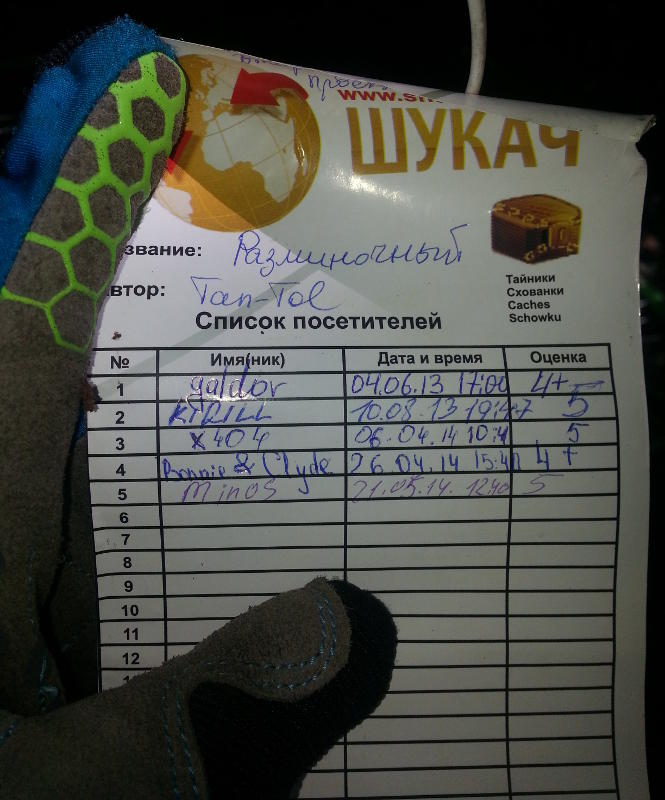 www.s
ШУКАЧ
звание: Разминочный
втор: Tan-Tol
Тайники
Схованки
Caches
Schowku
Список посетителей
№ Имя(ник) Дата и время Оценка
1 galdor 04.06.13 17:00 4+
2 10.03.13 5
3 x404 06.04.14 5
4 Bonnie & Clyde 26.04.14 4+
5 Minos 21.05.14. 12:40 5
6
7
8
9
10
11
12